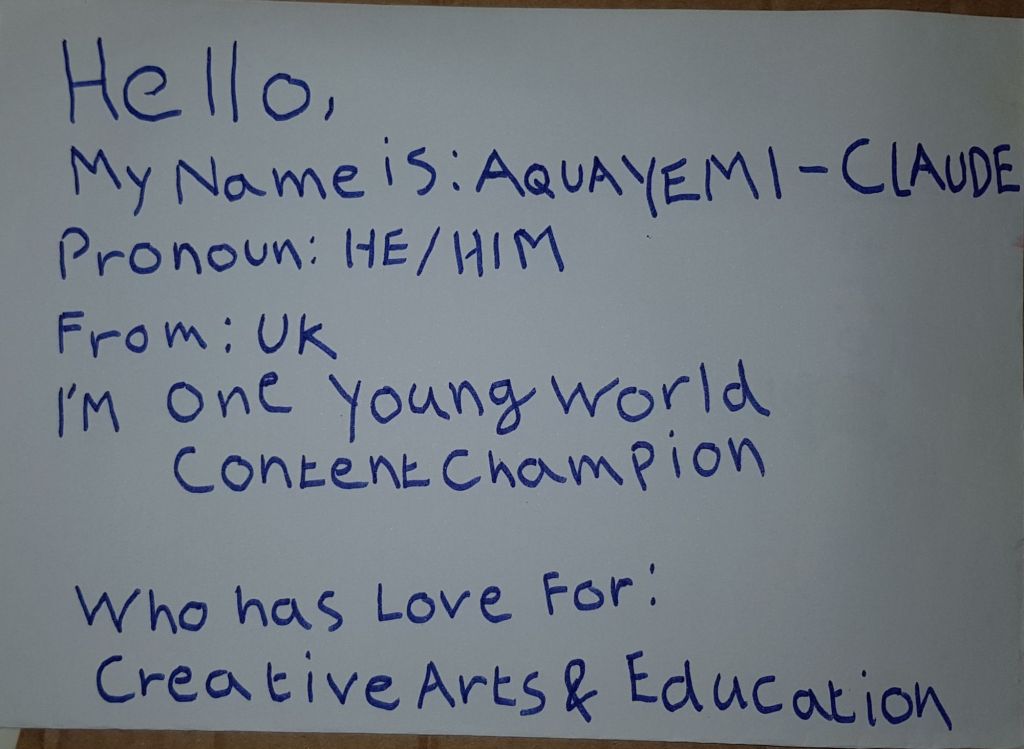 Hello,
My Name is: AQUAYEMI-CLAUDE
Pronoun: HE/HIM
From: UK
I'M One Young World
Content Champion
Who has Love For:
Creative Arts & Education